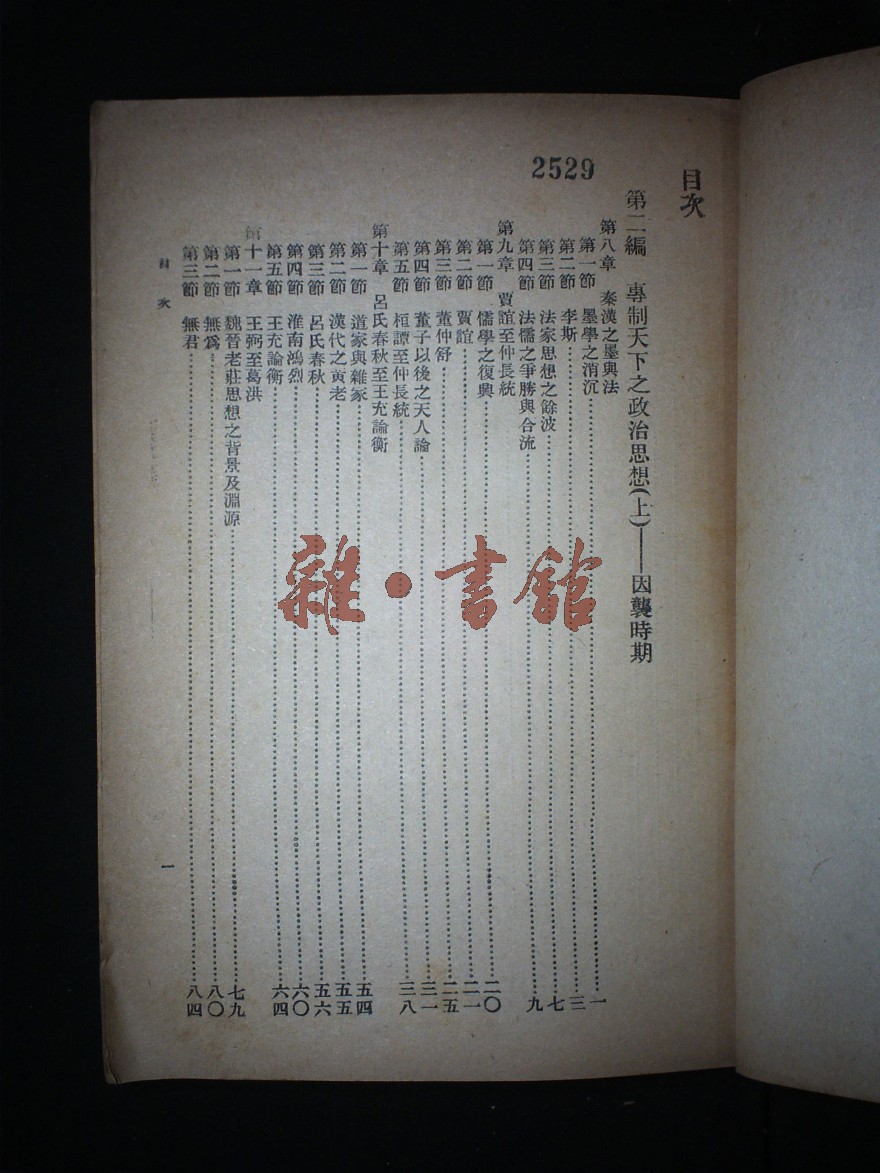 2529
目次
第二編　專制天下之政治思想(上)——因襲時期
第八章　秦漢之墨與法
第一節　墨學之消沉……一
第二節　李斯……三
第三節　法家思想之餘波……七
第四節　法儒之爭勝與合流……九
第九章　賈誼至仲長統
第一節　儒學之復興……二〇
第二節　賈誼……二一
第三節　董仲舒……二五
第四節　董子以後之天人論……三一
第五節　桓譚至仲長統……三八
第十章　呂氏春秋至王充論衡
第一節　道家與雜家……五四
第二節　漢代之黃老……五五
第三節　呂氏春秋……五六
第四節　淮南鴻烈……六〇
第五節　王充論衡……六四
第十一章　王弼至葛洪
第一節　魏晉老莊思想之背景及淵源……七九
第二節　無爲……八〇
第三節　無君……八四
目次
一
雜·書館